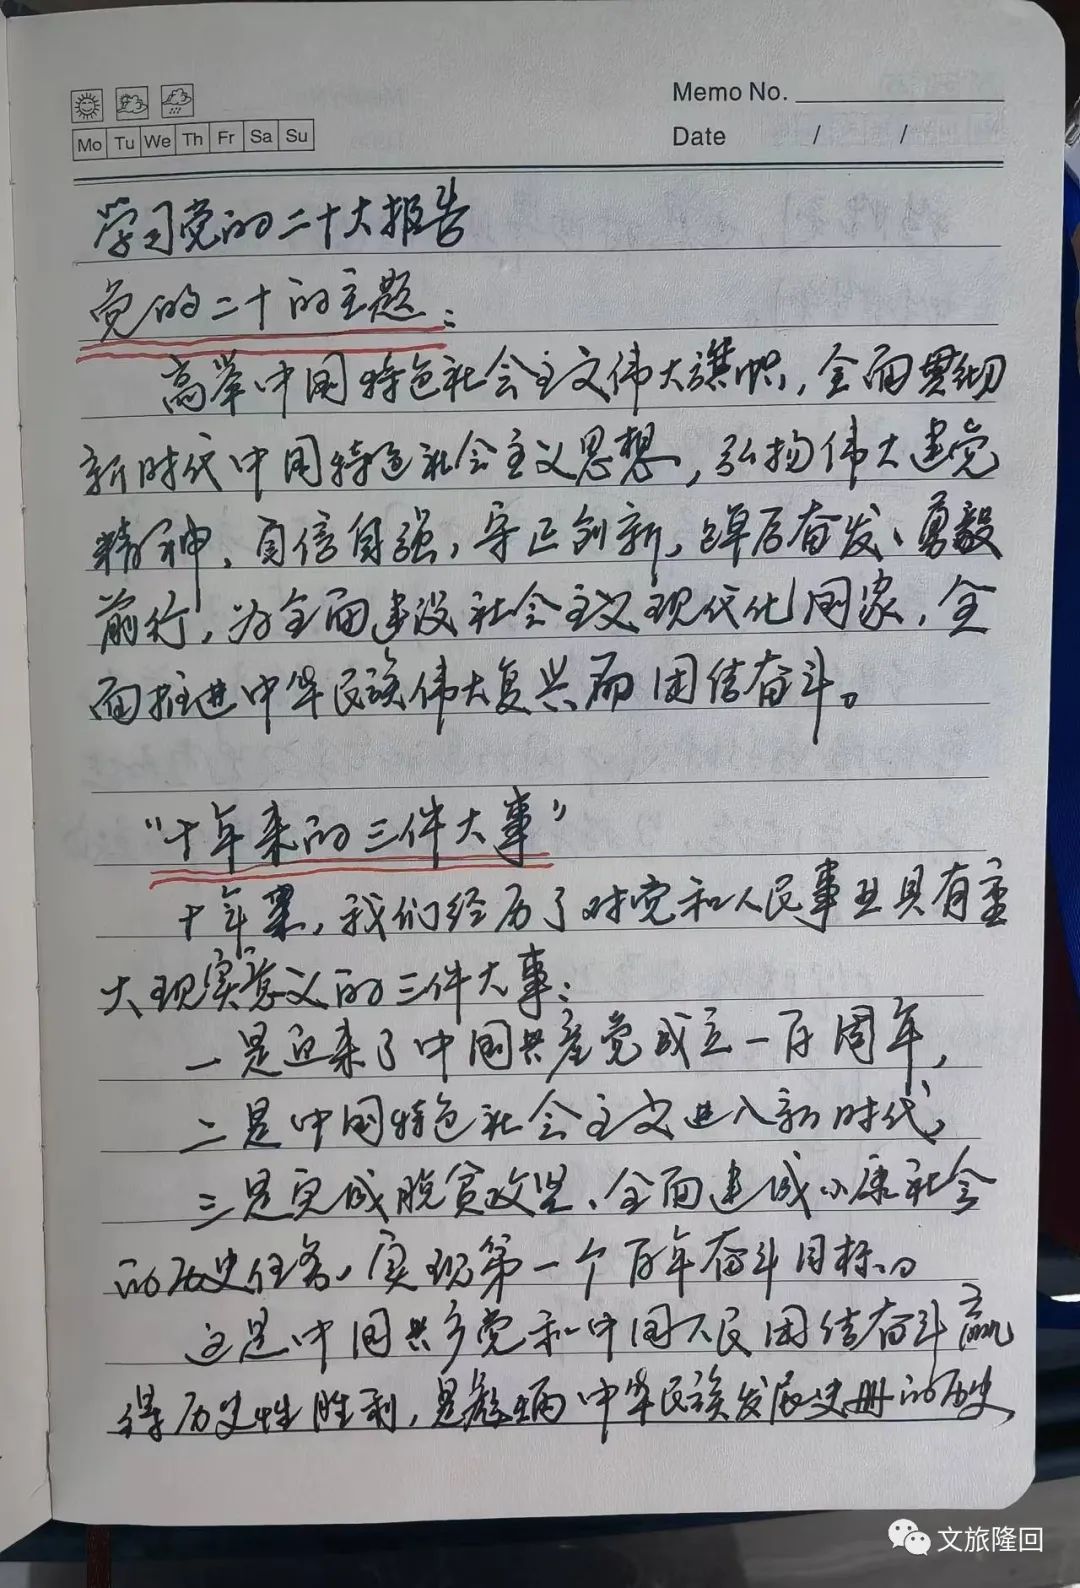 Memo No.
Mo Tu We Th Fr Sa Su
Date / /
学习党的二十大报告
党的二十的主题：
高举中国特色社会主义伟大旗帜，全面贯彻
新时代中国特色社会主义思想，弘扬伟大建党
精神，自信自强，守正创新，踔厉奋发、勇毅
前行，为全面建设社会主义现代化国家，全
面推进中华民族伟大复兴而团结奋斗。
“十年来的三件大事”
十年来，我们经历了对党和人民事业具有重
大现实意义的三件大事：
一是迎来了中国共产党成立一百周年，
二是中国特色社会主义进入新时代，
三是完成脱贫攻坚、全面建成小康社会
的历史任务，实现第一个百年奋斗目标。
这是中国共产党和中国人民团结奋斗赢
得历史性胜利，是彪炳中华民族发展史册的历史
文旅隆回